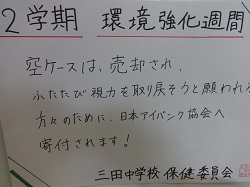 2学期 環境強化週間
空ケースは、売却され、
ふたたび視力を取り戻そうと願われる
方々のために、日本アイバンク協会へ
寄付されます！
三田中学校 保健委員会